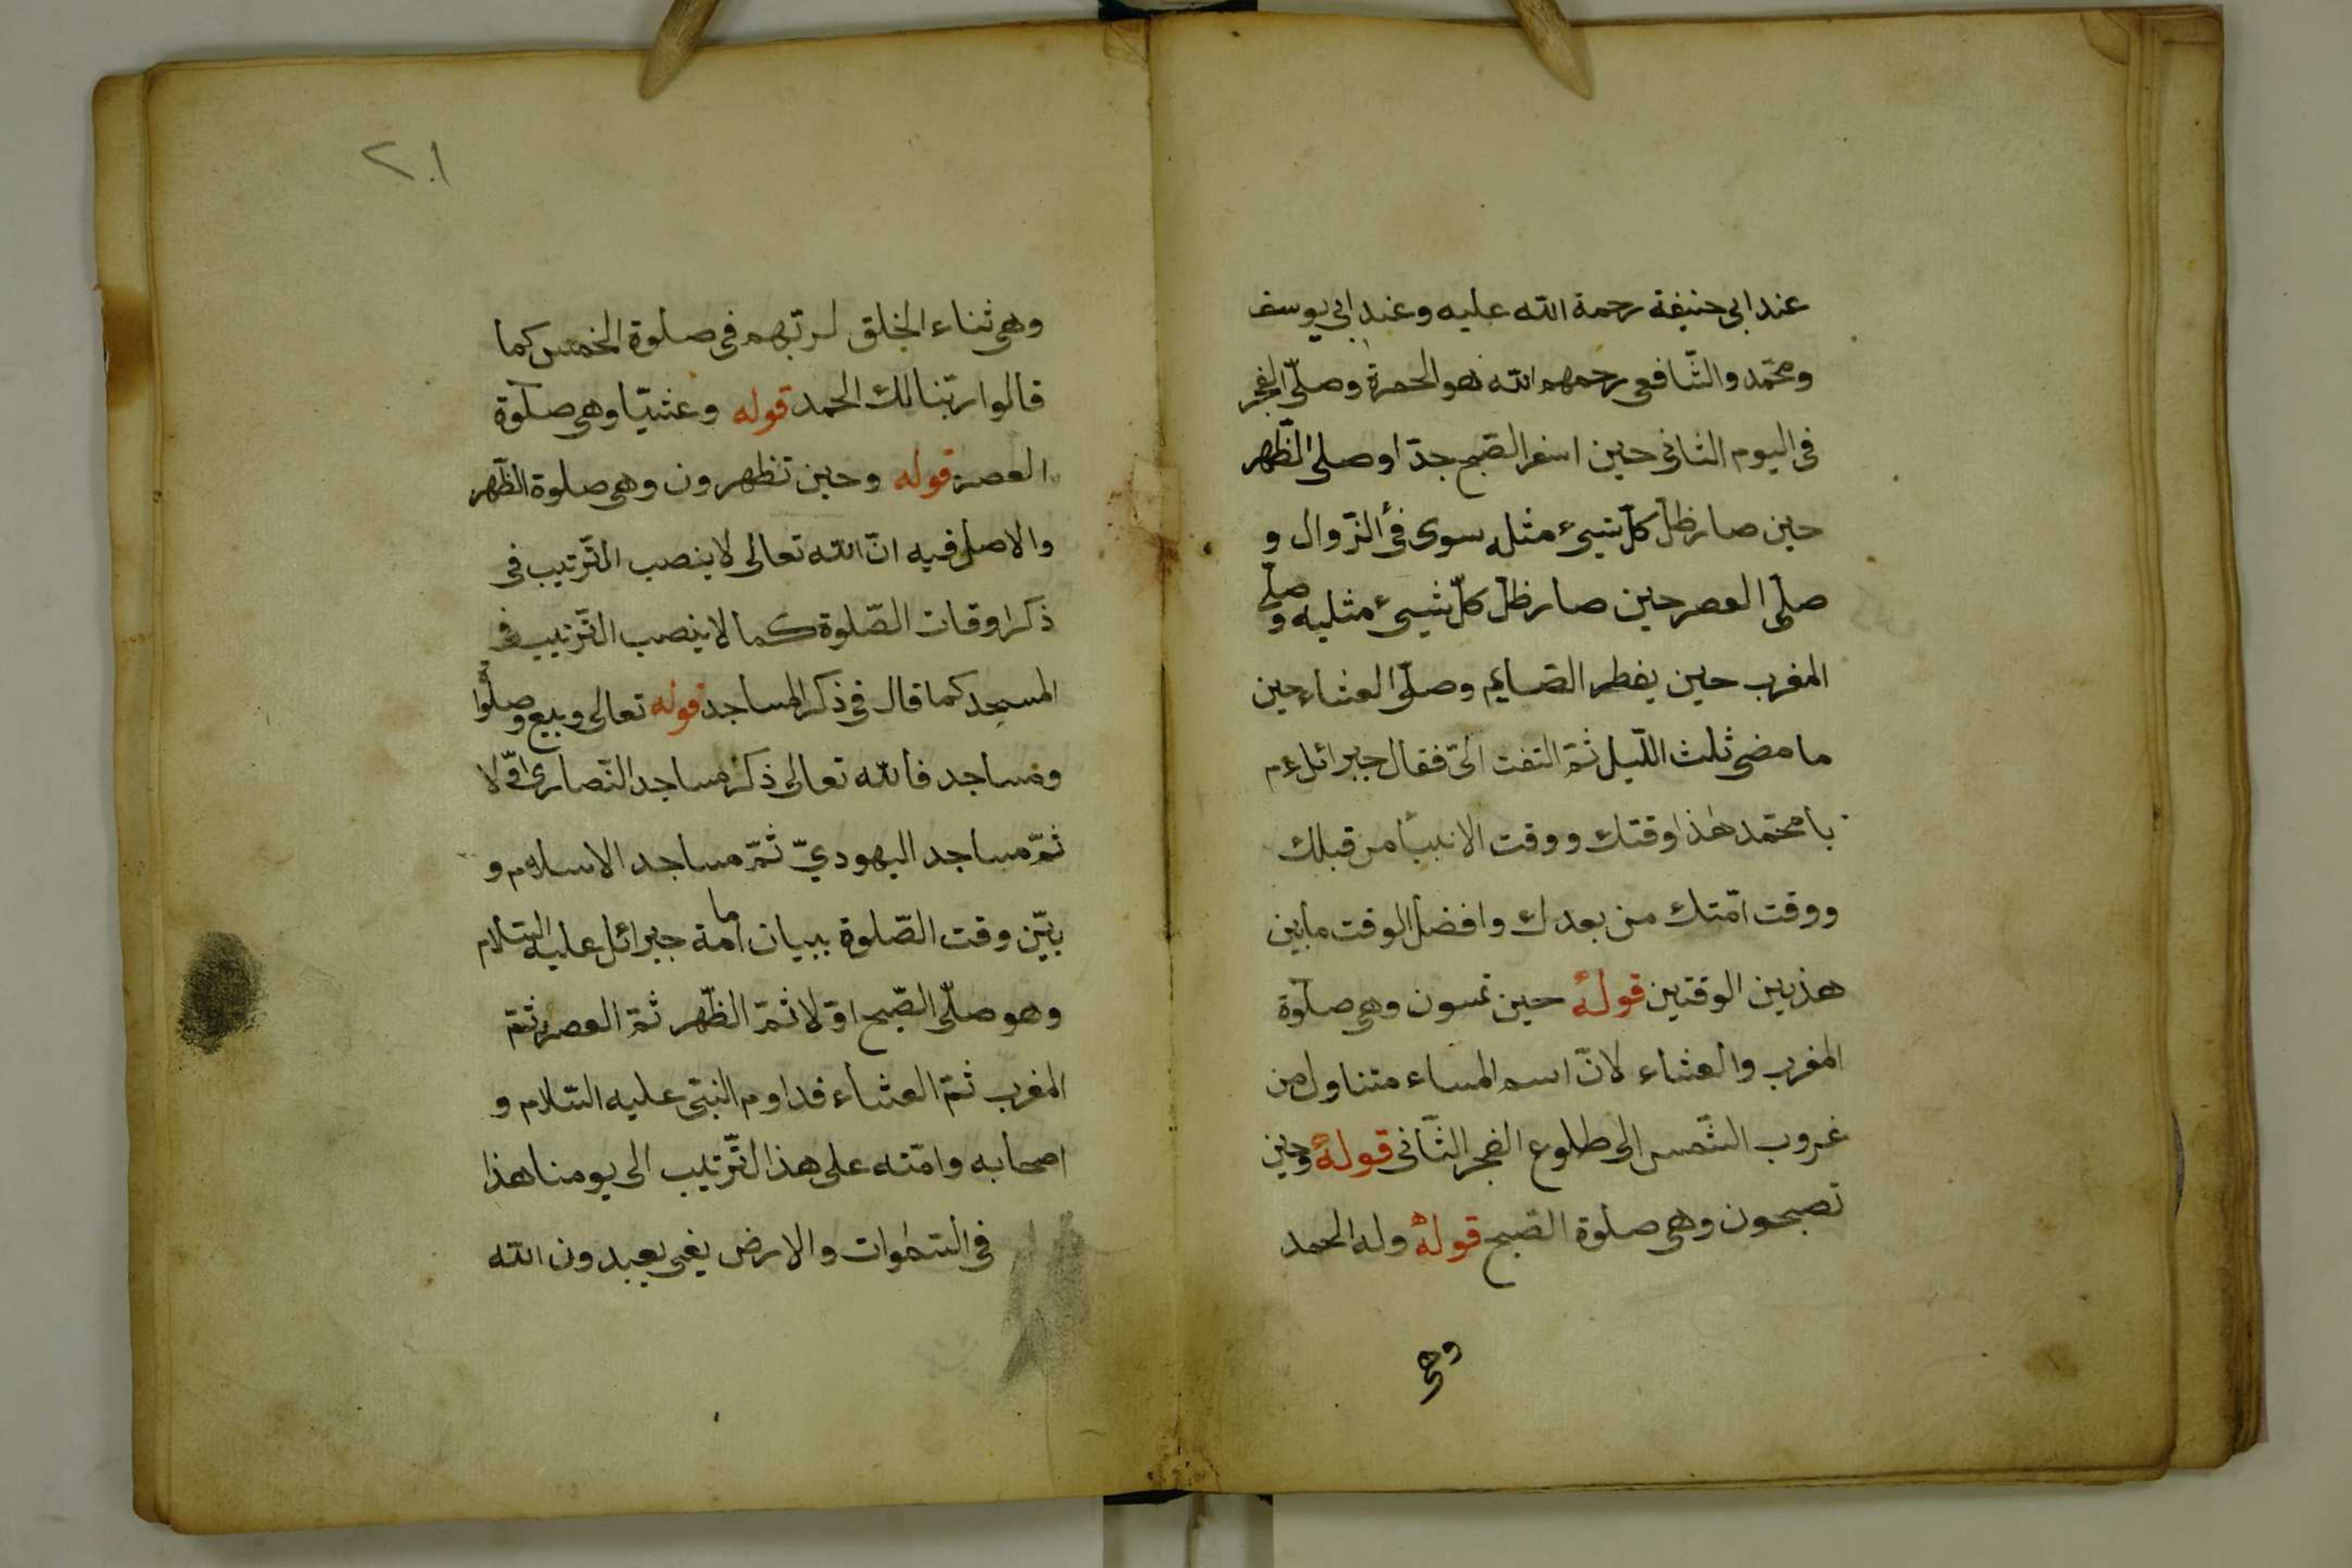 عند ابى حنيفة رحمة الله عليه وعند ابى يوسف
ومحمّد والشّافعى رحمهم الله هو الحمرة وصلّى الفجر
فى اليوم الثانى حين اسفر الصّبح جدّا وصلى الظّهر
حين صار ظلّ كلّ شيىء مثله سوى فئ الزّوال و
صلّى العصر حين صار ظلّ كلّ شيىء مثليه وصلّى
المغرب حين يفطر الصّايم وصلّى العشاء حين
ما مضى ثلث اللّيل ثمّ التفت الىّ فقال جبرائل عم
يا محمّد هٰذا وقتك ووقت الانبيأ من قبلك
ووقت امّتك من بعدك وافضل الوقت ما بين
هذين الوقتين قولهُ حين تمسون وهى صلٓوة
المغرب والعشاء لانّ اسم المساء متناول من
غروب الشّمس الى طلوع الفجر الثّانى قولهُ وحين
تصبحون وهى صلوة الصّبح قولهُ وله الحمد
وهى
٢٠١
وهى ثناء الخلق لربّهم فى صلوة الخمس كما
قالوا ربّنا لك الحمد قوله وعشيّا وهى صلٓوة
العصر قوله وحين تظهرون وهى صلوة الظّهر
والاصل فيه انّ الله تعالى لا ينصب التّرتيب فى
ذكر اوقات الصّلوة كما لا ينصب التّرتيب فى
المسجد كما قال فى ذكر المساجد قوله تعالى وبيع وصلوا
ومساجد فالله تعالى ذكر مساجد النّصارى اوّلا
ثمّ مساجد اليهوديّ ثمّ مساجد الاسلام و
بيّن وقت الصّلوة ببيان امامة جبرائل عليه السّلام
وهو صلّى الصّبح اوّلا ثمّ الظّهر ثمّ العصر ثمّ
المغرب ثمّ العشاء فداوم النبّى عليه السّلام و
اصحابه وامّته على هذا التّرتيب الى يومنا هذا
فى السّمٰوات والارض يغى يعبدون الله